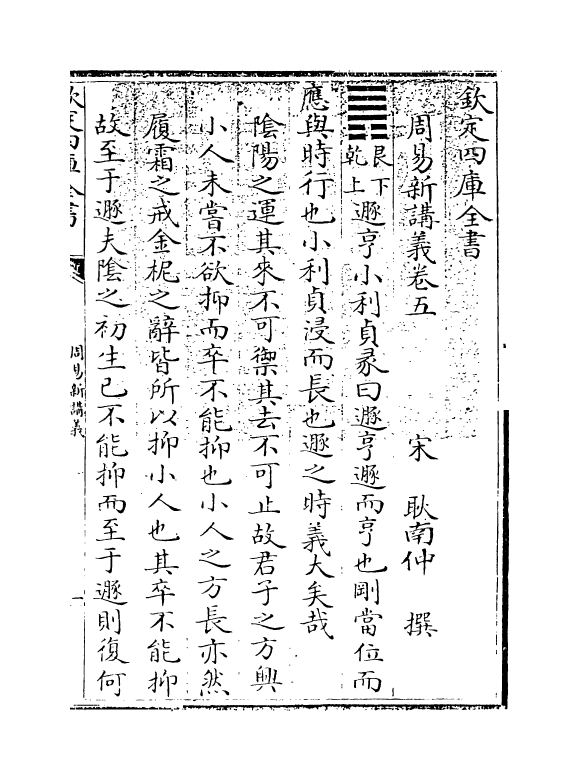 欽定四庫全書
周易新講義卷五
宋 耿南仲 撰
䷠艮下乾上遯亨小利貞彖曰遯亨遯而亨也剛當位而
應與時行也小利貞浸而長也遯之時義大矣哉
陰陽之運其來不可禦其去不可止故君子之方興
小人未嘗不欲抑而卒不能抑也小人之方長亦然
履霜之戒金柅之辭皆所以抑小人也其卒不能抑
故至于遯夫陰之初生已不能抑而至于遯則復何
欽定四庫全書
周易新講義
一